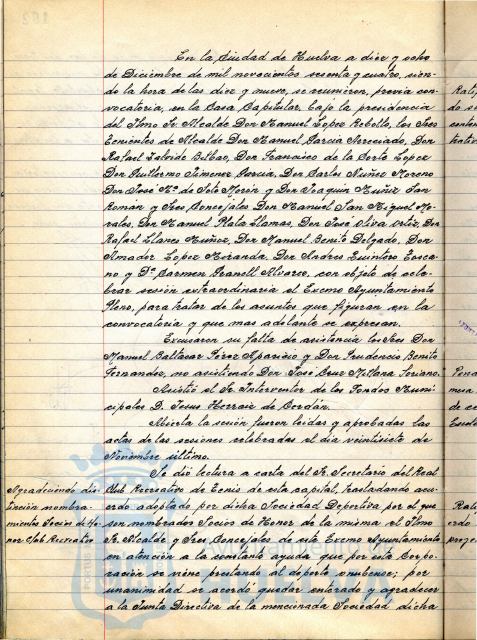 En la Ciudad de Huelva a diez y ocho
de Diciembre de mil novecientos sesenta y cuatro, sien-
do la hora de las diez y nueve, se reunieron, previa con-
vocatoria, en la Casa Capitular, bajo la presidencia
del Ilmo Sr. Alcalde Don Manuel Lopez Rebollo, los Sres
Tenientes de Alcalde Don Manuel Garcia Arreciado, Don
Rafael Zalvide Bilbao, Don Francisco de la Corte Lopez
Don Guillermo Jimenez Garcia, Don Carlos Nuñez Moreno
Don José Mª de Soto Morón y Don Joaquin Muñiz San
Román y Sres Concejales Don Manuel San Miguel Mo-
rales, Don Manuel Plata Llamas, Don José Oliva Ortiz, Don
Rafael Llanes Muñoz, Don Manuel Benito Delgado, Don
Amador Lopez Miranda, Don Andres Quintero Tosca-
no y Dª Carmen Granell Alvarez, con objeto de cele-
brar sesión extraordinaria el Excmo Ayuntamiento
Pleno, para tratar de los asuntos que figuran en la
convocatoria y que mas adelante se expresan.
Excusaron su falta de asistencia los Sres Don
Manuel Baltasar Perez Aparicio y Don Prudencio Benito
Fernandez, no asistiendo Don José Cruz Millana Soriano
Asistió el Sr. Interventor de los Fondos Muni-
cipales D. Jesus Herraiz de Cerdán.
Abierta la sesión fueron leidas y aprobadas las
actas de las sesiones celebradas el dia veintisiete de
Noviembre último.
Se dió lectura a carta del Sr. Secretario del Real
Agradeciendo dis-
tinción nombra-
mientos Socios de Ho-
nor Club Recreativo
Club Recreativo de Tenis de esta capital, trasladando acu-
erdo adoptado por dicha Sociedad Deportiva por el que
son nombrados Socios de Honor de la misma el Ilmo
Sr. Alcalde y Sres Concejales de este Excmo Ayuntamiento
en atención a la constante ayuda que por esta Corpo-
ración se viene prestando al deporte onubense; por
unanimidad se acordo quedar enterado y agradecer
a la Junta Directiva de la mencionada Sociedad dicha